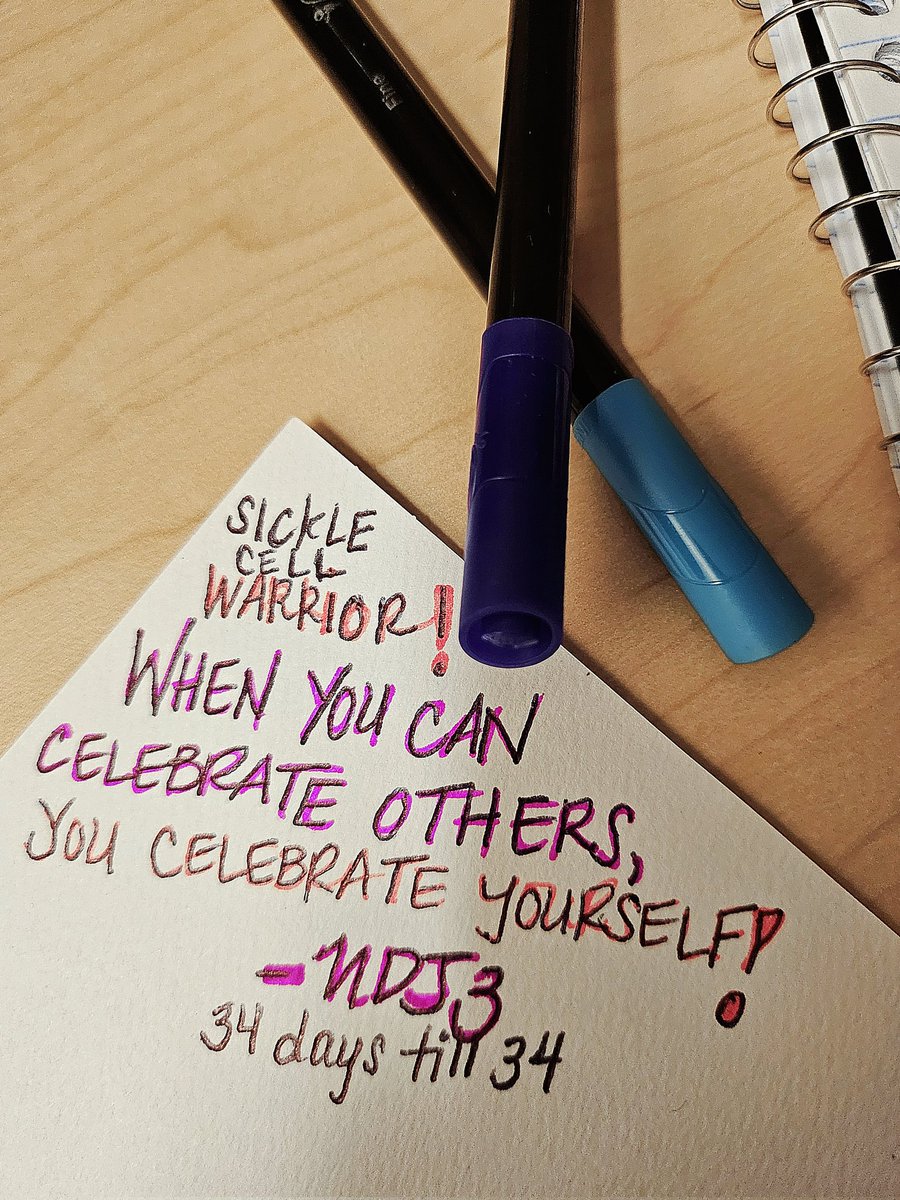 Fine
SICKLE
CELL
WARRIOR!
WHEN YOU CAN
CELEBRATE OTHERS,
YOU CELEBRATE YOURSELF!
-NDJ3
34 days till 34